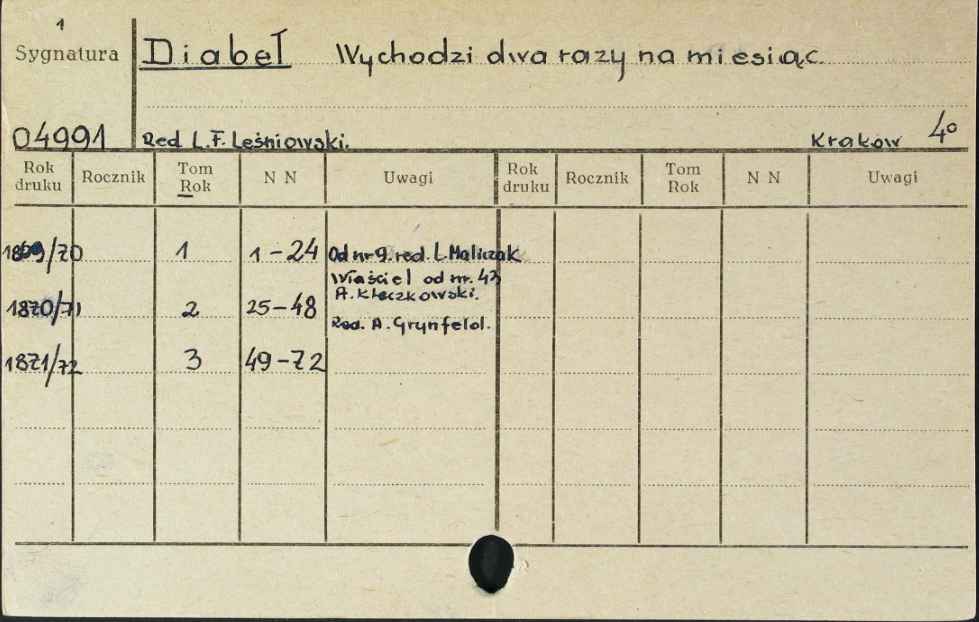 1
Sygnatura Diabeł Wychodzi dwa razy na miesiąc.
04991 Red L.F. Leśniowski. Krakow 4°
Rok druku Rocznik Tom Rok N N Uwagi Rok druku Rocznik Tom Rok N N Uwagi
1869/70 1 1-24 Od nr 9. red. L. Maliczak
Właściel od nr. 43
A. Kleczkowski.
1870/71 2 25-48
Red. A. Grynfeld.
1871/72 3 49-72